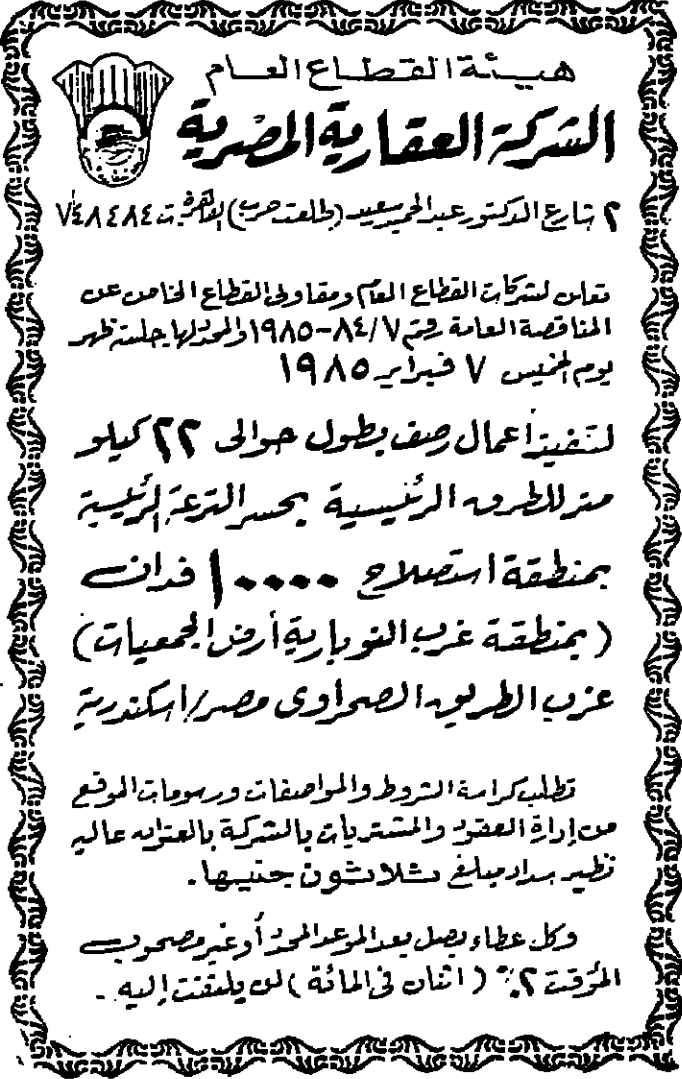 هيئة القطاع العام
الشركة العقارية المصرية
٢ شارع الدكتور عبد الحميد سعيد (طلعت حرب) القاهرة ت ٧٤٨٤٨٤
تعلن لشركات القطاع العام ومقاولى القطاع الخاص عن
المناقصة العامة رقم ٨٤/٧-١٩٨٥ والمحدد لها جلسة ظهر
يوم الخميس ٧ فبراير ١٩٨٥
لتنفيذ أعمال رصف بطول حوالى ٢٢ كيلو
متر للطرق الرئيسية بجسر الترعة الرئيسية
بمنطقة استصلاح ١٠٠٠٠ فدان
(بمنطقة غرب النوبارية أرض الجمعيات)
غرب الطريق الصحراوى مصر/اسكندرية
تطلب كراسة الشروط والمواصفات ورسومات الموقع
من إدارة العقود والمشتريات بالشركة بالعنوان عاليه
نظير سداد مبلغ ثلاثون جنيها.
وكل عطاء يصل بعد الموعد المحدد أو غير مصحوب
المؤقت ٢٪ (اثنان فى المائة) لن يلتفت إليه.